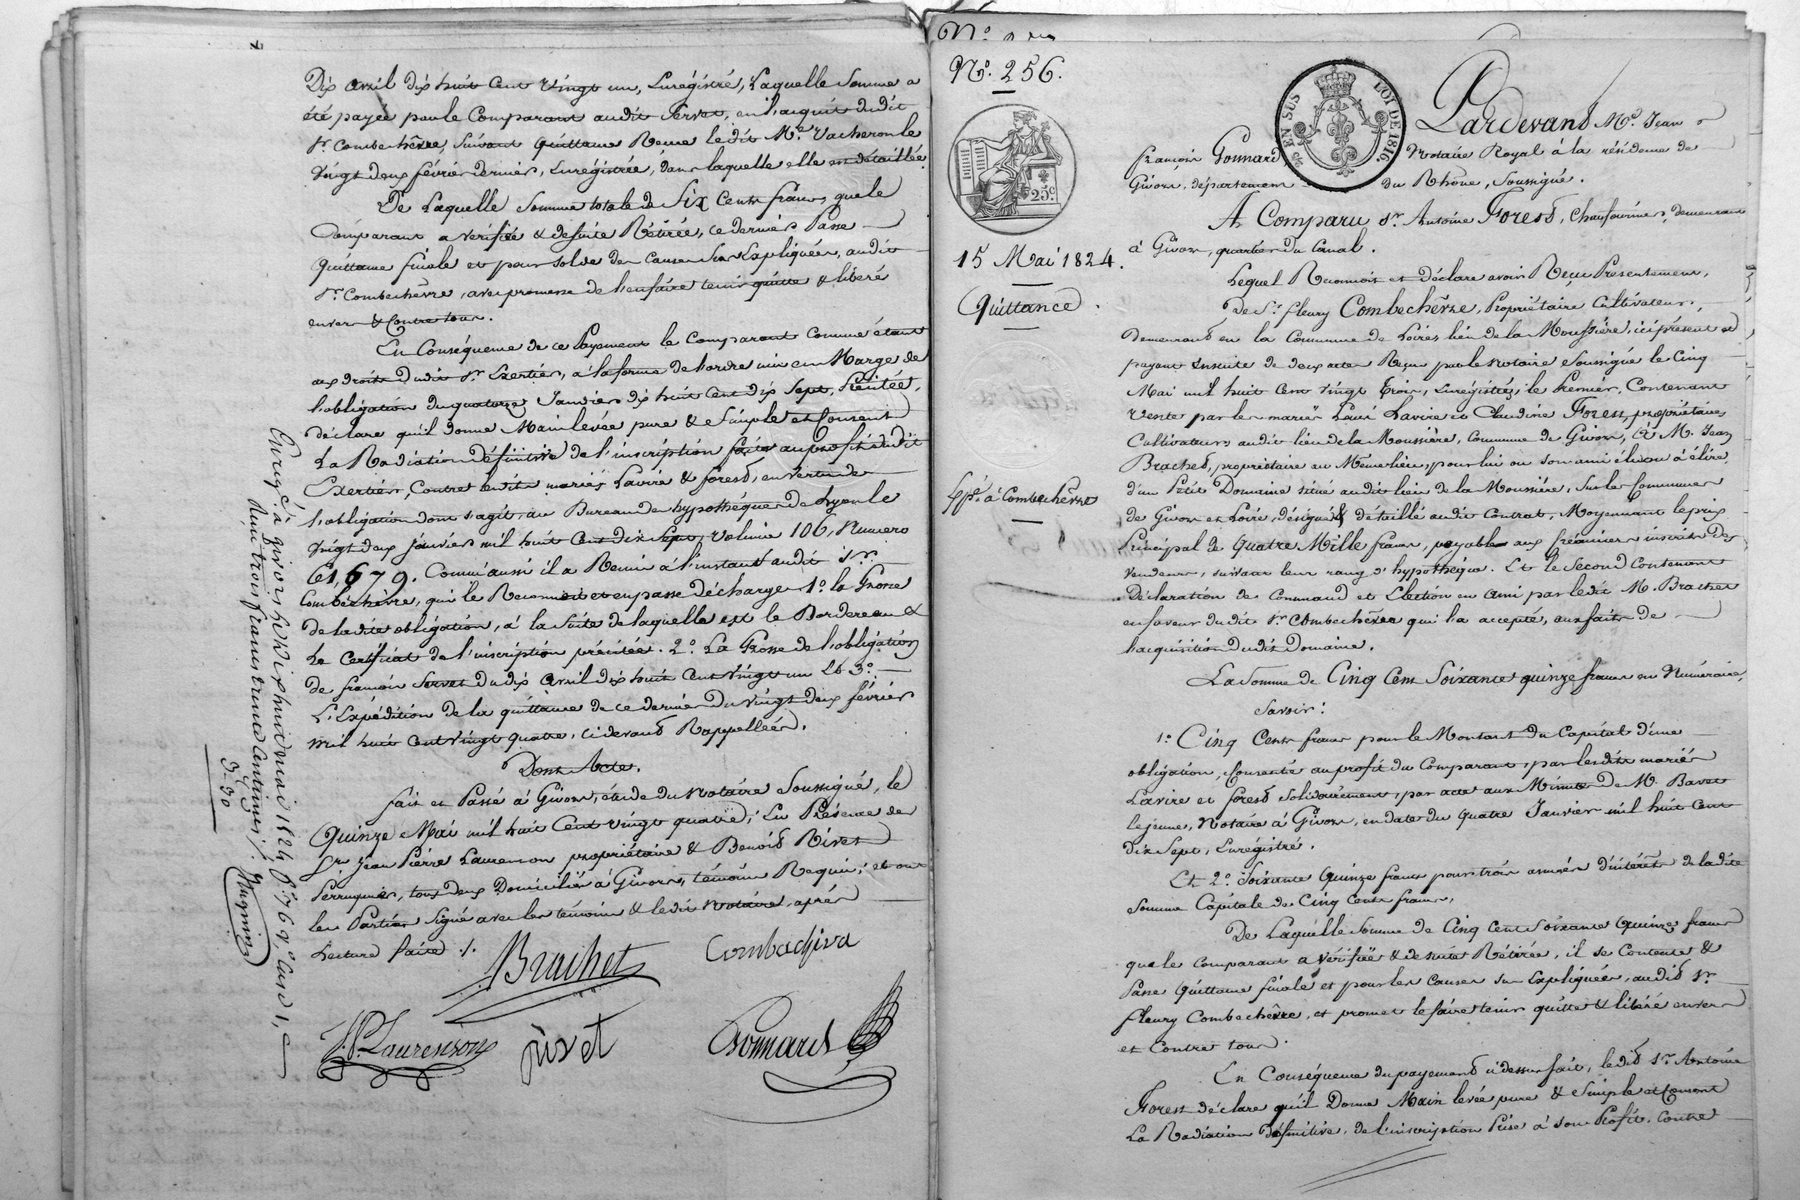 Dix avril dix huit Cent Vingt un, Enrégistré, Laquelle Somme a
été payée par le Comparant audit Servet, en l'acquit dudit
Sr. Combechèvre, Suivant Quittance Reçue le dit Me. Vacheron le
Vingt deux février dernier, Enrégistrée, dans laquelle elle est détaillée.
De Laquelle Somme totale de Six Cents francs, que le
Comparant a vérifiée & desuite Rétirée, ce dernier Passe
Quittance finale et pour solde des Causes Sus Expliquées, audit
Sr. Combechèvre, avec promesse de l'en faire tenir quitte & libéré
envers & Contre tous.
En Conséquence de ce Payement le Comparant comme étant
aux droits dudit Sr. Exertier, à la forme de l'ordre mis en Marge de
l'obligation du quatorze Janvier dix huit Cent dix Sept, Précitée,
déclare qu'il donne Main levée pure & Simple et Consent
La Radiation définitive de l'inscription faite au profit dudit
Exertier, Contre lesdits mariés Lavire & forest, en vertu de
l'obligation dont s'agit, au Bureau des hypothéques de Lyon le
Vingt deux Janvier mil huit Cent dix Sept, Volume 106, Numero
61,679. Comm'aussi il a Remis à l'instant audit Sr.
Combechèvre, qui le Reconnait et en passe décharge 1º. la Grosse
de la dite obligation, à la Suite de laquelle est le Bordereau &
Le Certificat de l'inscription précitée. 2º. La Grosse de l'obligation
de françois Servet du dix avril dix huit Cent Vingt un Et 3º.
L'Expédition de la quittance de ce dernier du vingt deux février
mil huit Cent Vingt quatre, ci devant Rappellées.
Dont Acte.
fait et Passé à Givors, étude du Notaire Soussigné, le
Quinze Mai mil huit Cent Vingt quatre; En Présence des
Srs. Jean Pierre Laurenson propriétaire & Benoit Rivet
Perruquier, tous deux Domiciliés à Givors, témoins Requis; et ont
les Parties Signé avec les témoins & le dit Notaire, après
Lecture faite ./.
Brachet
Combachiva
J.P. Laurenson
rivet
Gonnard
Enregé. à givors le dix huit mai 1824
Reçu trois francs trente Centimes ./.
3-30
Nº. 256.
25 EN SUS
LOI DE 1816.
25c
15 Mai 1824.
Quittance.
Exp. à Combechèvre
Pardevant Me. Jean
françois Gonnard Notaire Royal à la résidence de
Givors, département du Rhône, Soussigné.
A Comparu Sr. Antoine Forest, Chaufournier, demeurant
à Givors, quartier du Canal.
Lequel Reconnois et déclare avoir Reçu Présentement,
De Sr. fleury Combechèvre, Propriétaire Cultivateur,
demeurant en la Commune de Loire, lieu de la Moussière, ici présent et
payant ensuite de deux actes Reçus par le Notaire Soussigné le Cinq
Mai mil huit Cent vingt Trois, Enrégistrés, le Premier, Contenant
Vente par les mariés Louis Lavire et Claudine Forest, propriétaires
Cultivateurs audit lieu de la Moussière, Commune de Givors, à M. Jean
Brachet, propriétaire au Même lieu, pour lui ou son ami élu ou à élire,
d'un Petit Domaine situé audit lieu de la Moussière, Sur les Communes
de Givors et Loire, désigné & détaillé audit Contrat, Moyennant le prix
Principal de Quatre Mille francs, payables aux Créanciers inscrits des
vendeurs, suivant leur rang d'hypothéque. Et le Second Contenant
déclaration de Command et Election en ami par ledit M. Brachet
en faveur dudit Sr. Combechèvre qui l'a acceptée, aux faits de
l'acquisition dudit Domaine.
La Somme de Cinq Cent Soixante quinze francs en Numéraire,
Savoir:
1º. Cinq Cents francs pour le Montant du Capital d'une
obligation, Consentie au profit du Comparant, par lesdits mariés
Lavire et forest Solidairement, par acte aux Minutes de Me. Bavet
le jeune, Notaire à Givors, en date du quatre Janvier mil huit Cent
dix Sept, Enrégistré.
Et 2º. Soixante Quinze francs pour trois années d'intérêts de la dite
Somme Capitale de Cinq Cents francs,
De Laquelle Somme de Cinq Cent Soixante Quinze francs
que le Comparant a vérifiée & desuite Rétirée, il se Contente &
Passe Quittance finale et pour les Causes Sus Expliquées, audit Sr.
fleury Combechèvre, et promet le faire tenir quitte & libéré envers
et Contre tous.
En Conséquence du payement ci dessus fait, ledit Sr. Antoine
Forest déclare qu'il Donne Main levée pure & Simple et Consent
La Radiation définitive, de l'inscription Prise à son Profit, Contre